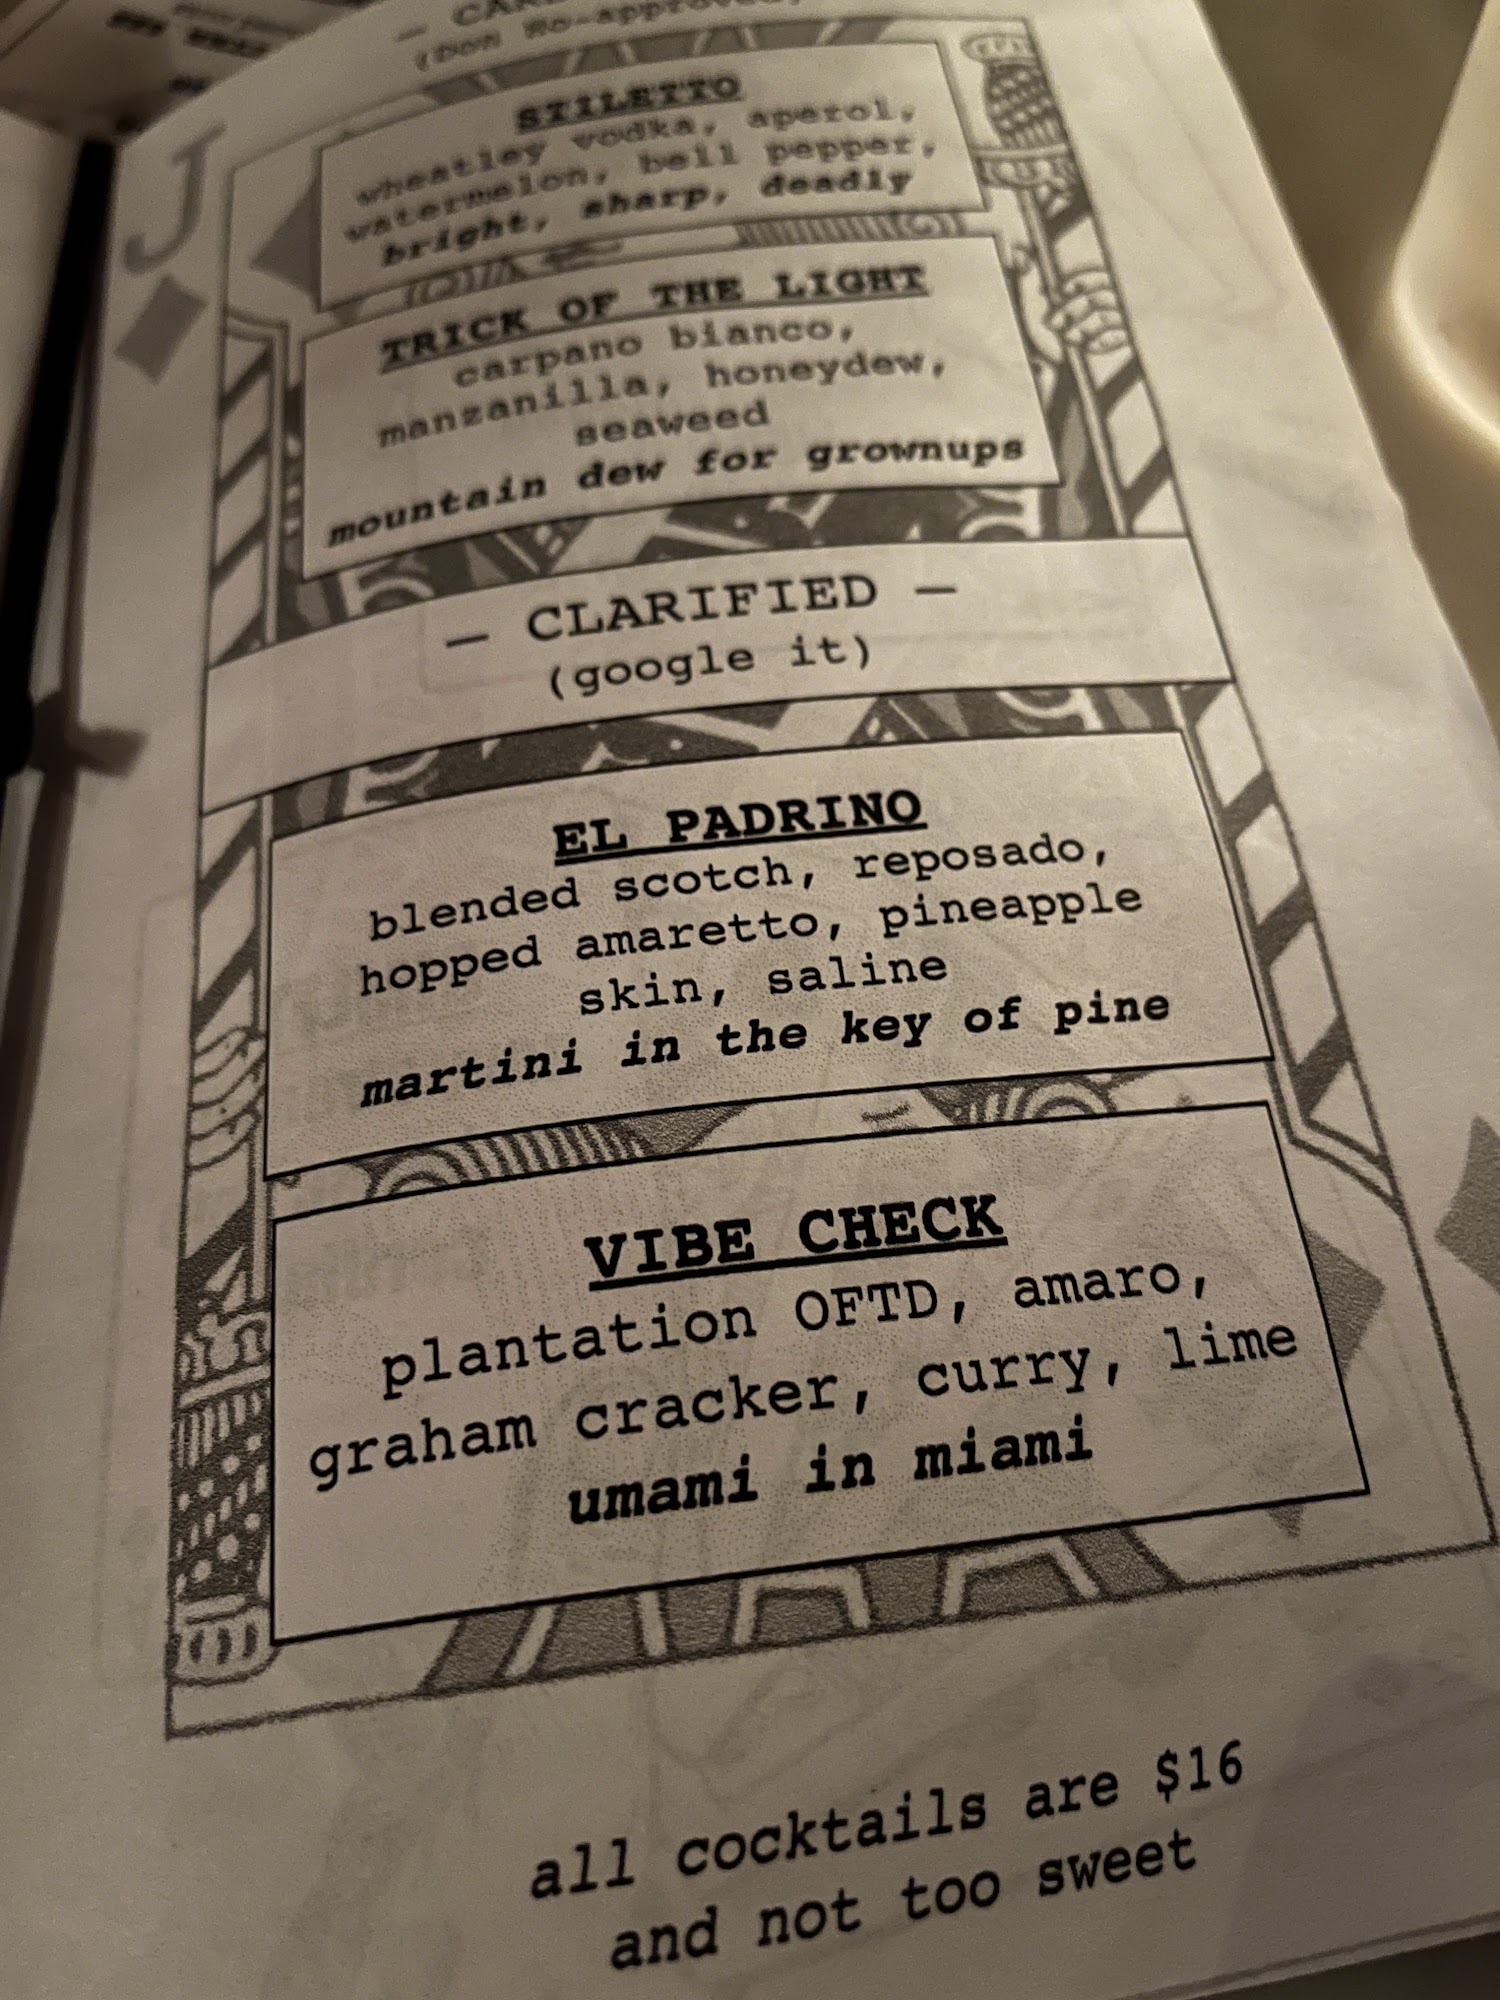 J
(Don Ro-approved)
STILETTO
wheatley vodka, aperol,
watermelon, bell pepper,
bright, sharp, deadly
TRICK OF THE LIGHT
carpano bianco,
manzanilla, honeydew,
seaweed
mountain dew for grownups
— CLARIFIED —
(google it)
EL PADRINO
blended scotch, reposado,
hopped amaretto, pineapple
skin, saline
martini in the key of pine
VIBE CHECK
plantation OFTD, amaro,
graham cracker, curry, lime
umami in miami
all cocktails are $16
and not too sweet